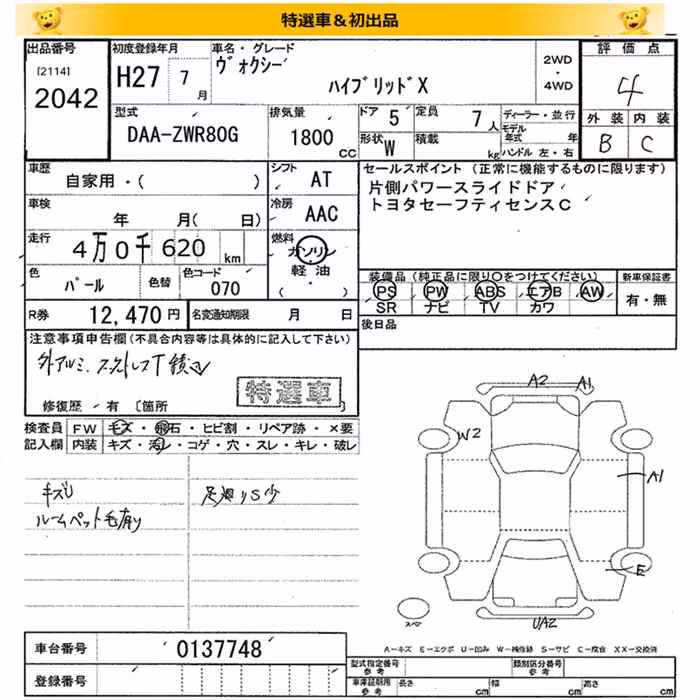 特選車＆初出品
出品番号
[2114]
2042
初度登録年月
H27 7月
車名・グレード
ヴォクシー
ハイブリッドX
2WD
・
4WD
評価点
4
外装 内装
B C
型式
DAA-ZWR80G
排気量
1800 CC
ドア 5
形状 W
定員 7人
積載 kg
ディーラー・並行
モデル年式 年
ハンドル 左・右
車歴
自家用・( )
シフト AT
車検
年 月( 日)
冷房 AAC
走行
4万0千620 km
燃料
ガソリン
軽油
( )
色
パール
色替
色コード
070
R券 12,470円
名変通知期限 月 日
セールスポイント (正常に機能するものに限ります)
片側パワースライドドア
トヨタセーフティセンスC
装備品 (純正品に限り○をつけてください)
PS PW ABS エアB AW
SR ナビ TV カワ
新車保証書
有・無
後日品
注意事項申告欄 (不具合内容等は具体的に記入して下さい)
外アルミ、スタットレスT積込
特選車
修復歴・有 [箇所 ]
検査員記入欄
FW キズ・飛石・ヒビ割・リペア跡・×要
内装 キズ・汚レ・コゲ・穴・スレ・キレ・破レ
キズU
ルームペット毛有り
足廻りS少
A2 A1
W2
A1
E
UA2
スペア
A－キズ E－エクボ U－凹み W－補修跡 S－サビ C－腐食 XX－交換済
車台番号 0137748
登録番号
型式指定番号 参考
類別区分番号 参考
車庫証明用 参考
長さ cm 幅 cm 高さ cm